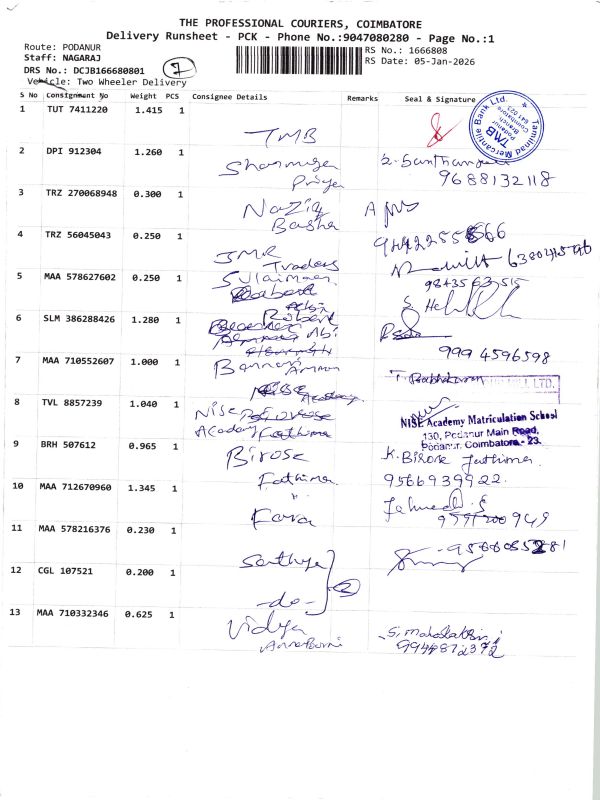 THE PROFESSIONAL COURIERS, COIMBATORE
Delivery Runsheet - PCK - Phone No.:9047080280 - Page No.:1
Route: PODANUR
Staff: NAGARAJ
DRS No.: DCJB166680801
Vehicle: Two Wheeler Delivery
RS No.: 1666808
RS Date: 05-Jan-2026
S No Consignment No Weight PCS Consignee Details Remarks Seal & Signature
1 TUT 7411220 1.415 1 TMB
Tamilnad Mercantile Bank Ltd.
TMB
Podanur
Branch
Coimbatore
641 023
2 DPI 912304 1.260 1 Shanmuga
Priya
9688132118
3 TRZ 270068948 0.300 1 Naziq
Basha
4 TRZ 56045043 0.250 1 JMR
Traders
5 MAA 578627602 0.250 1 Sulaiman
9843563515
6 SLM 386288426 1.280 1 Robert
999 4596598
7 MAA 710552607 1.000 1 Bannari
Amman
MILL LTD.
8 TVL 8857239 1.040 1 Nise
Academy
NISE Academy Matriculation School
130, Podanur Main Road,
Podanur, Coimbatore - 23.
9 BRH 507612 0.965 1 Birose
Fathima
K. Birose Fathima
9566939922.
10 MAA 712670960 1.345 1 Fara
11 MAA 578216376 0.230 1 Sathya
12 CGL 107521 0.200 1 -do-
2
13 MAA 710332346 0.625 1 Vidya
Annapoorni